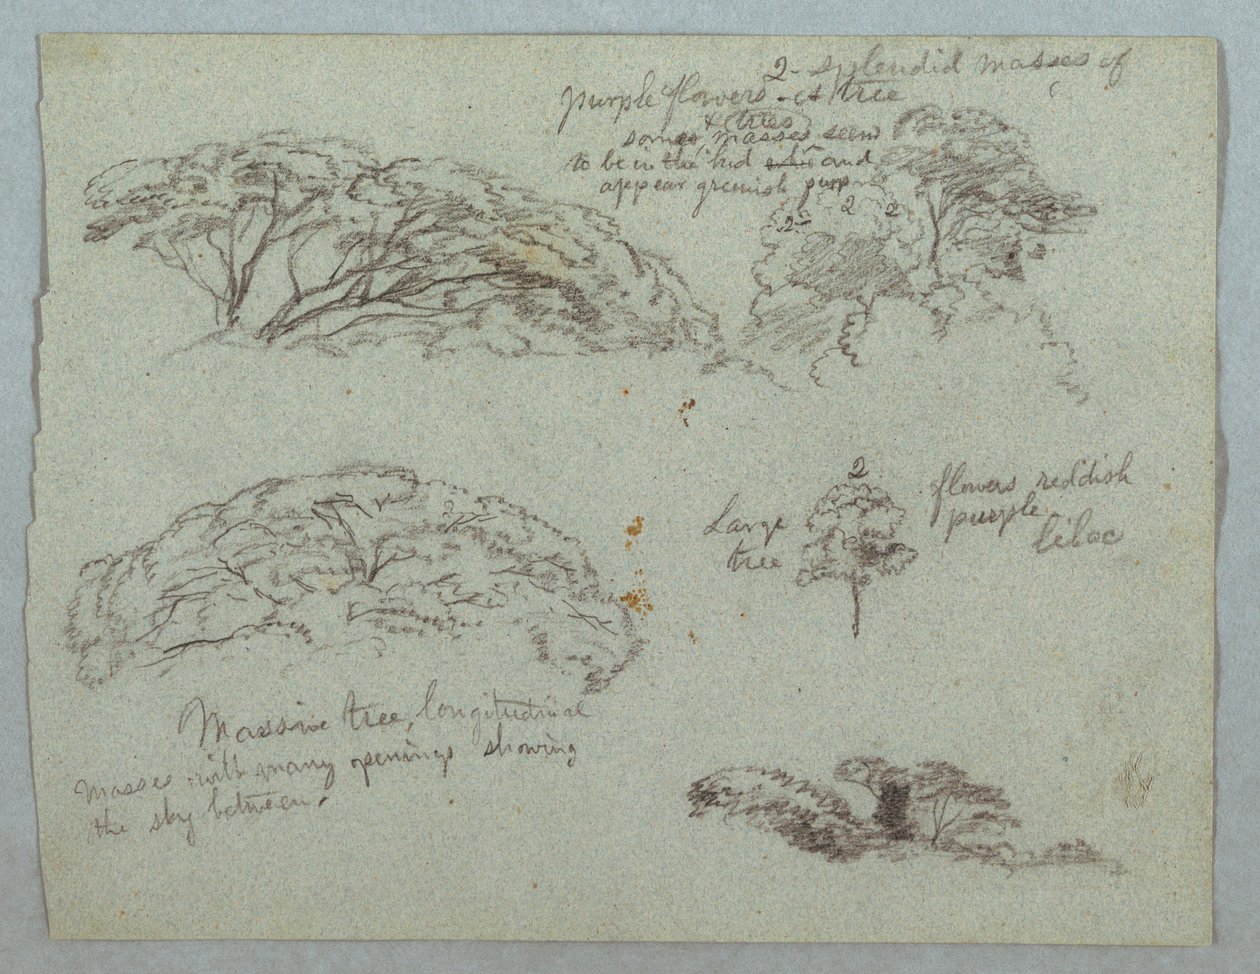 2 - splendid masses of
purple flowers - a tree
& trees
some masses seem
to be in the bud and
appear greenish purp
2 2 2
2
Large
tree
flowers reddish
purple
lilac
Massive tree, longitudinal
masses with many openings showing
the sky between.